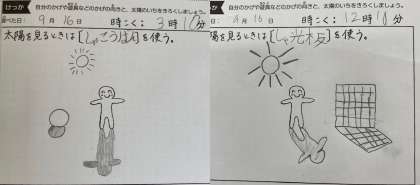 けっか 自分のかげや遊具などのかげの向きと、太陽のいちをきろくしましょう。
調べた日: 9月16日 時こく: 3時10分
太陽を見るときは[しゃこう板]を使う。
自分のかげや遊具などのかげの向きと、太陽のいちをきろくしましょう。
日: 9月16日 時こく: 12時10分
陽を見るときは[しゃ光板]を使う。